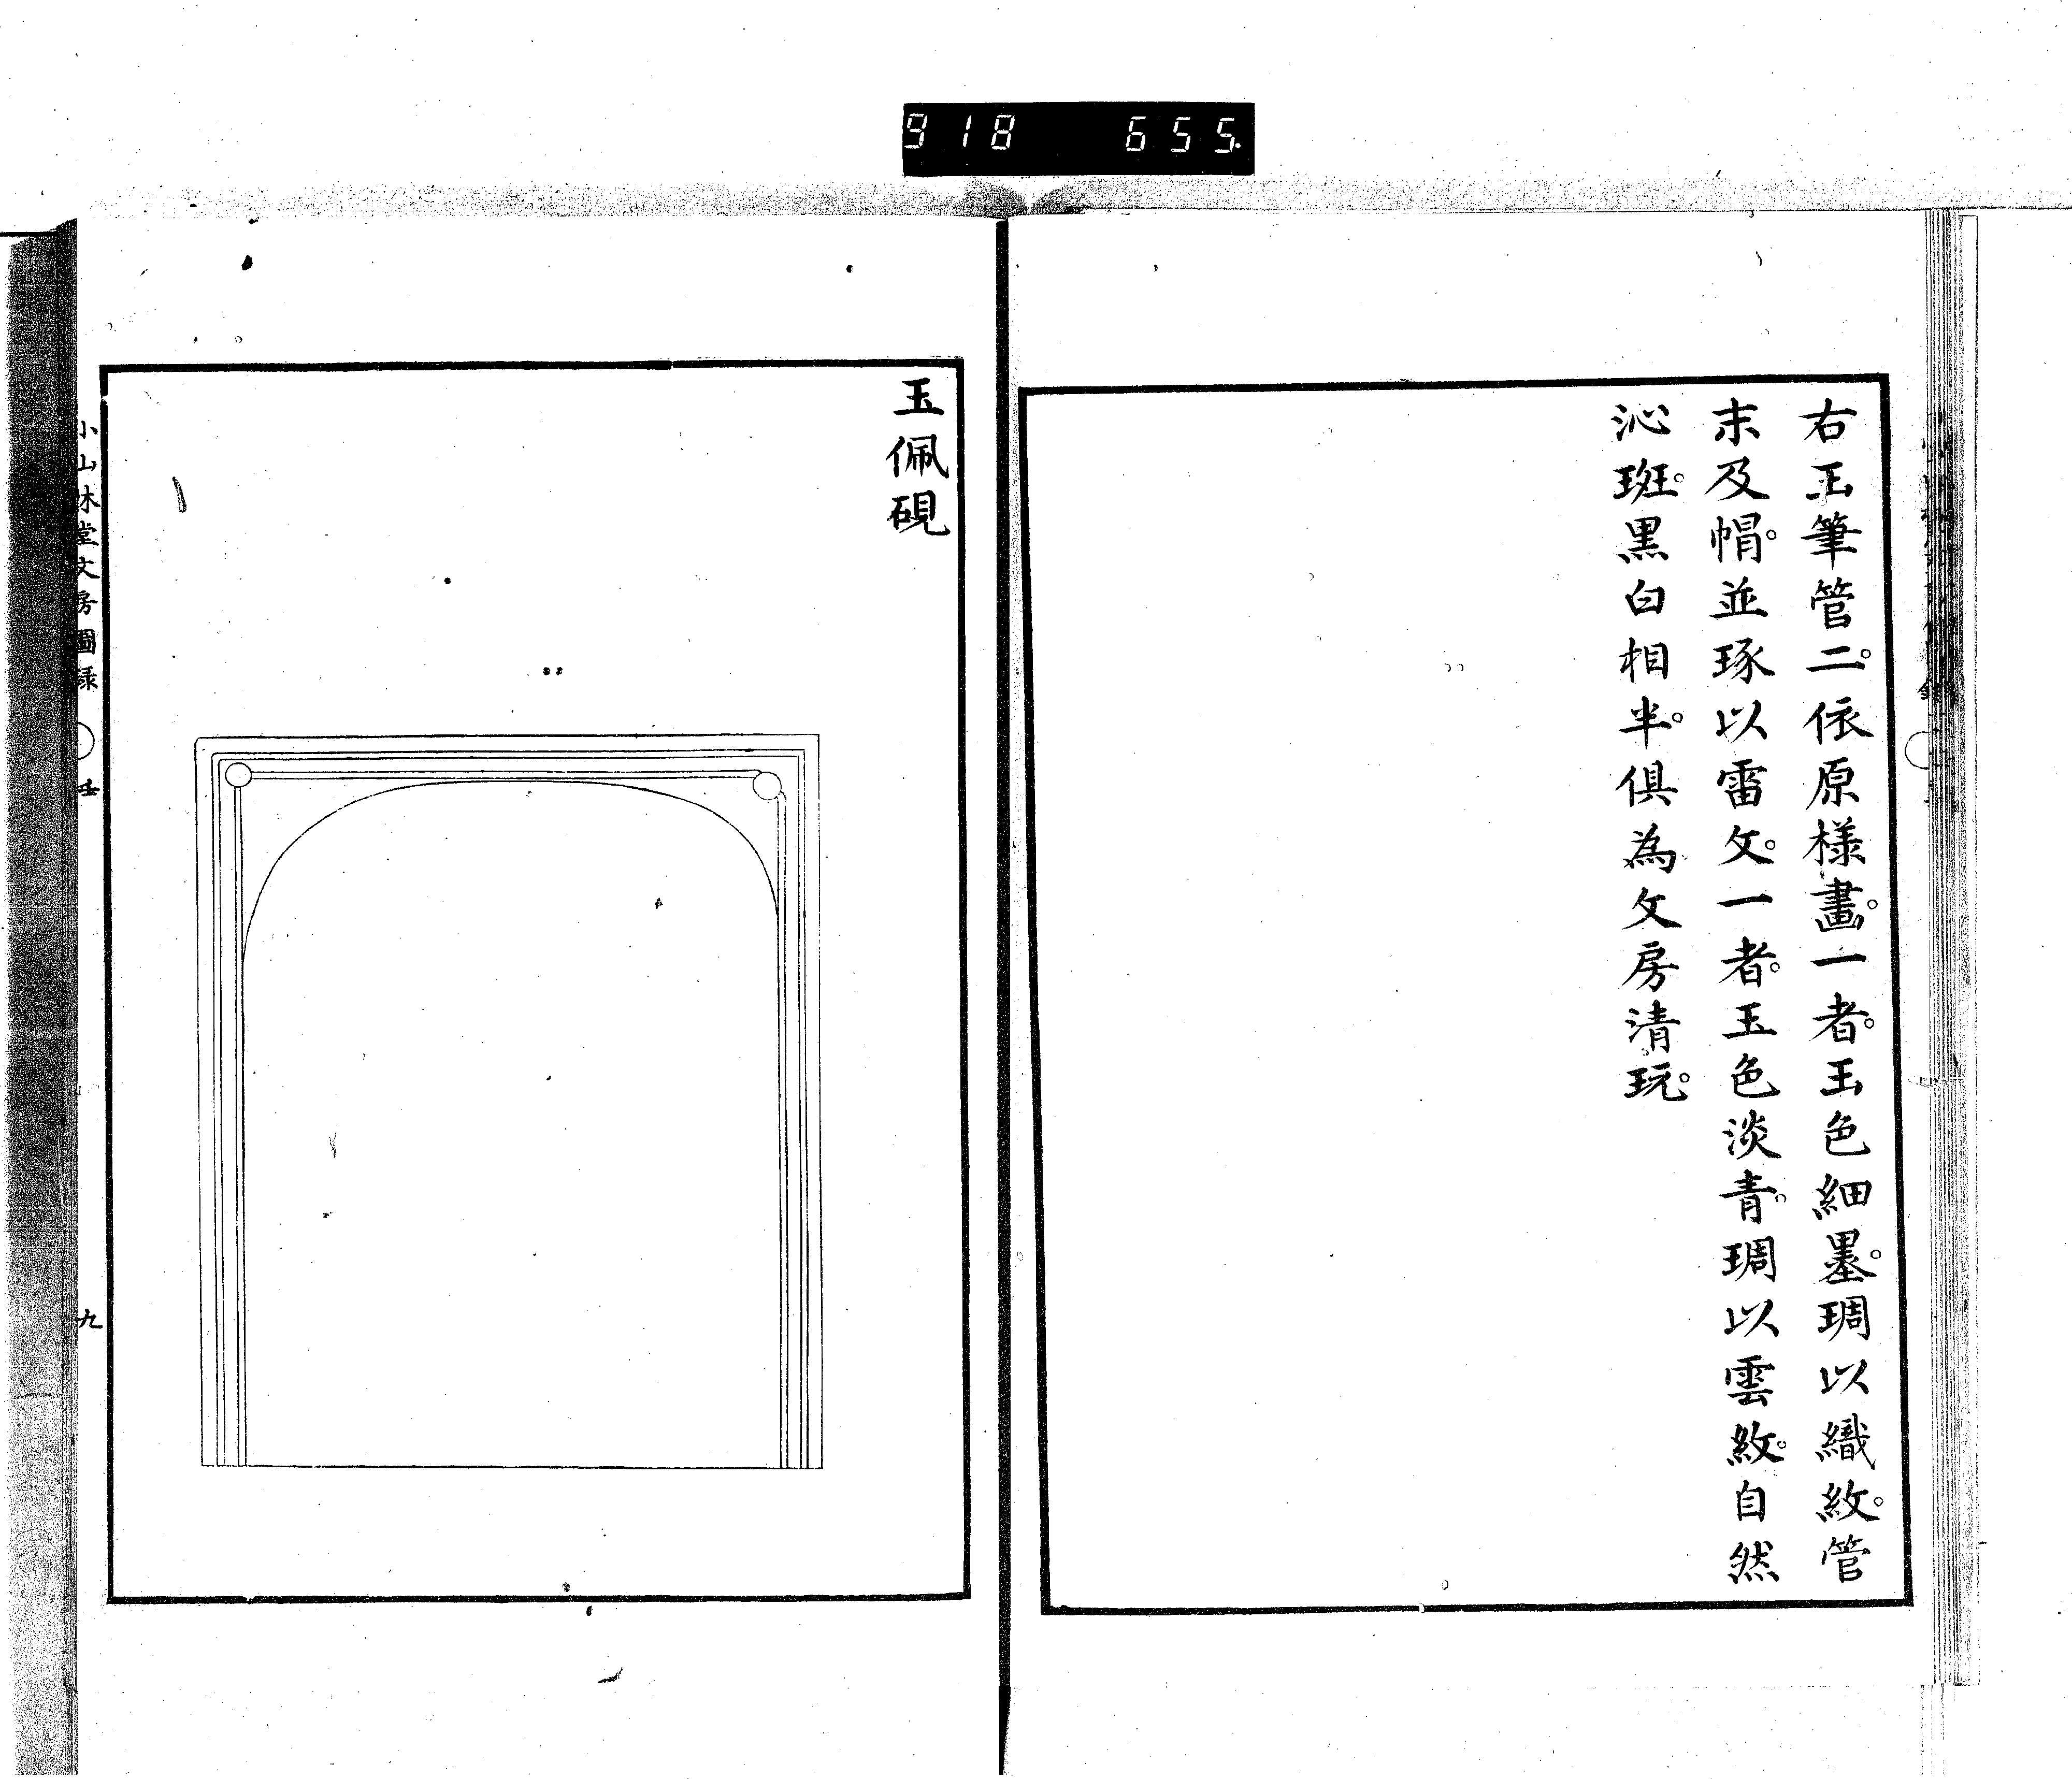 918 655.
右玉筆管二。依原様畫。一者。玉色細墨。琱以織紋。管
末及帽。並琢以雷文。一者。玉色淡青。琱以雲紋。自然
沁斑。黒白相半。俱為文房清玩。
玉佩硯
小山林堂文房圖録 〇 壬 九